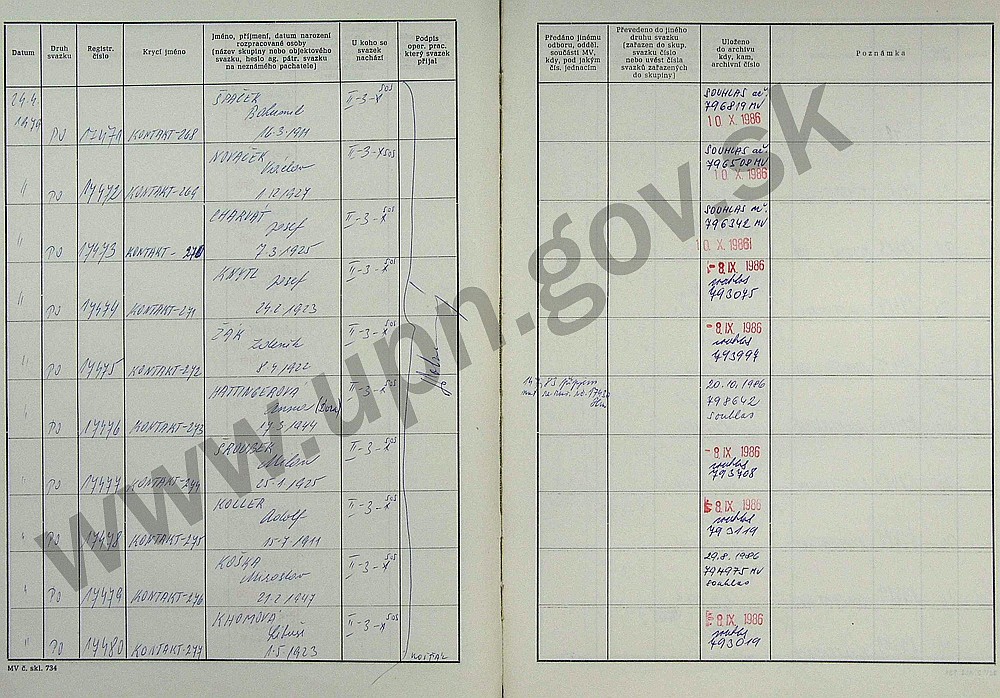 Datum
Druh svazku
Registr. číslo
Krycí jméno
Jméno, příjmení, datum narození
rozpracované osoby
(název skupiny nebo objektového
svazku, heslo ag. pátr. svazku
na neznámého pachatele)
U koho se
svazek
nachází
Podpis
oper. prac.
který svazek
přijal
Předáno jinému
odboru, odděl.
součásti MV,
kdy, pod jakým
čís. jednacím
Převedeno do jiného
druhu svazku
(zařazen do skup.
svazku číslo
nebo uvést čísla
svazků zařazených
do skupiny)
Uloženo
do archivu
kdy, kam,
archivní číslo
Poznámka
24.4.
PO 17471 KONTAKT-268
ŠPAČEK
Bohumil
16.3.1911
II-3-X 505
SOUHLAS
796819 MV
10 X. 1986
" PO 17472 KONTAKT-269
NOVÁČEK
Václav
1.12.1927
II-3-X 505
SOUHLAS
796508 MV
10 X. 1986
" PO 17473 KONTAKT-270
CHARVÁT
Josef
7.3.1925
II-3-X 505
SOUHLAS
796342 MV
10. X. 1986
" PO 17474 KONTAKT-271
Josef
24.2.1923
II-3-X 505
-8. IX. 1986
souhlas
793045
PO 17475 KONTAKT-272
ŽÁK
Zdeněk
8.4.1922
II-3-X 505
-8. IX. 1986
souhlas
PO 17476 KONTAKT-273
HATTINGEROVÁ
17.3.1944
II-3-X 505
20.10.1986
798642
souhlas
PO 17477 KONTAKT-274
SROUBEK
Milan
25.1.1925
II-3-X 505
-8. IX. 1986
souhlas
793408
" PO 17478 KONTAKT-275
KOLLER
Adolf
15.7.1911
II-3-X 505
8. IX. 1986
souhlas
793119
" PO 17479 KONTAKT-276
KOŠKA
Miroslav
21.2.1947
II-3-X 505
29.8.1986
794975 MV
souhlas
" PO 17480 KONTAKT-277
KHOMOVÁ
Libuše
1.5.1923
II-3-X 505
8. IX. 1986
souhlas
793019
MV č. skl. 734
www.upn.gov.sk